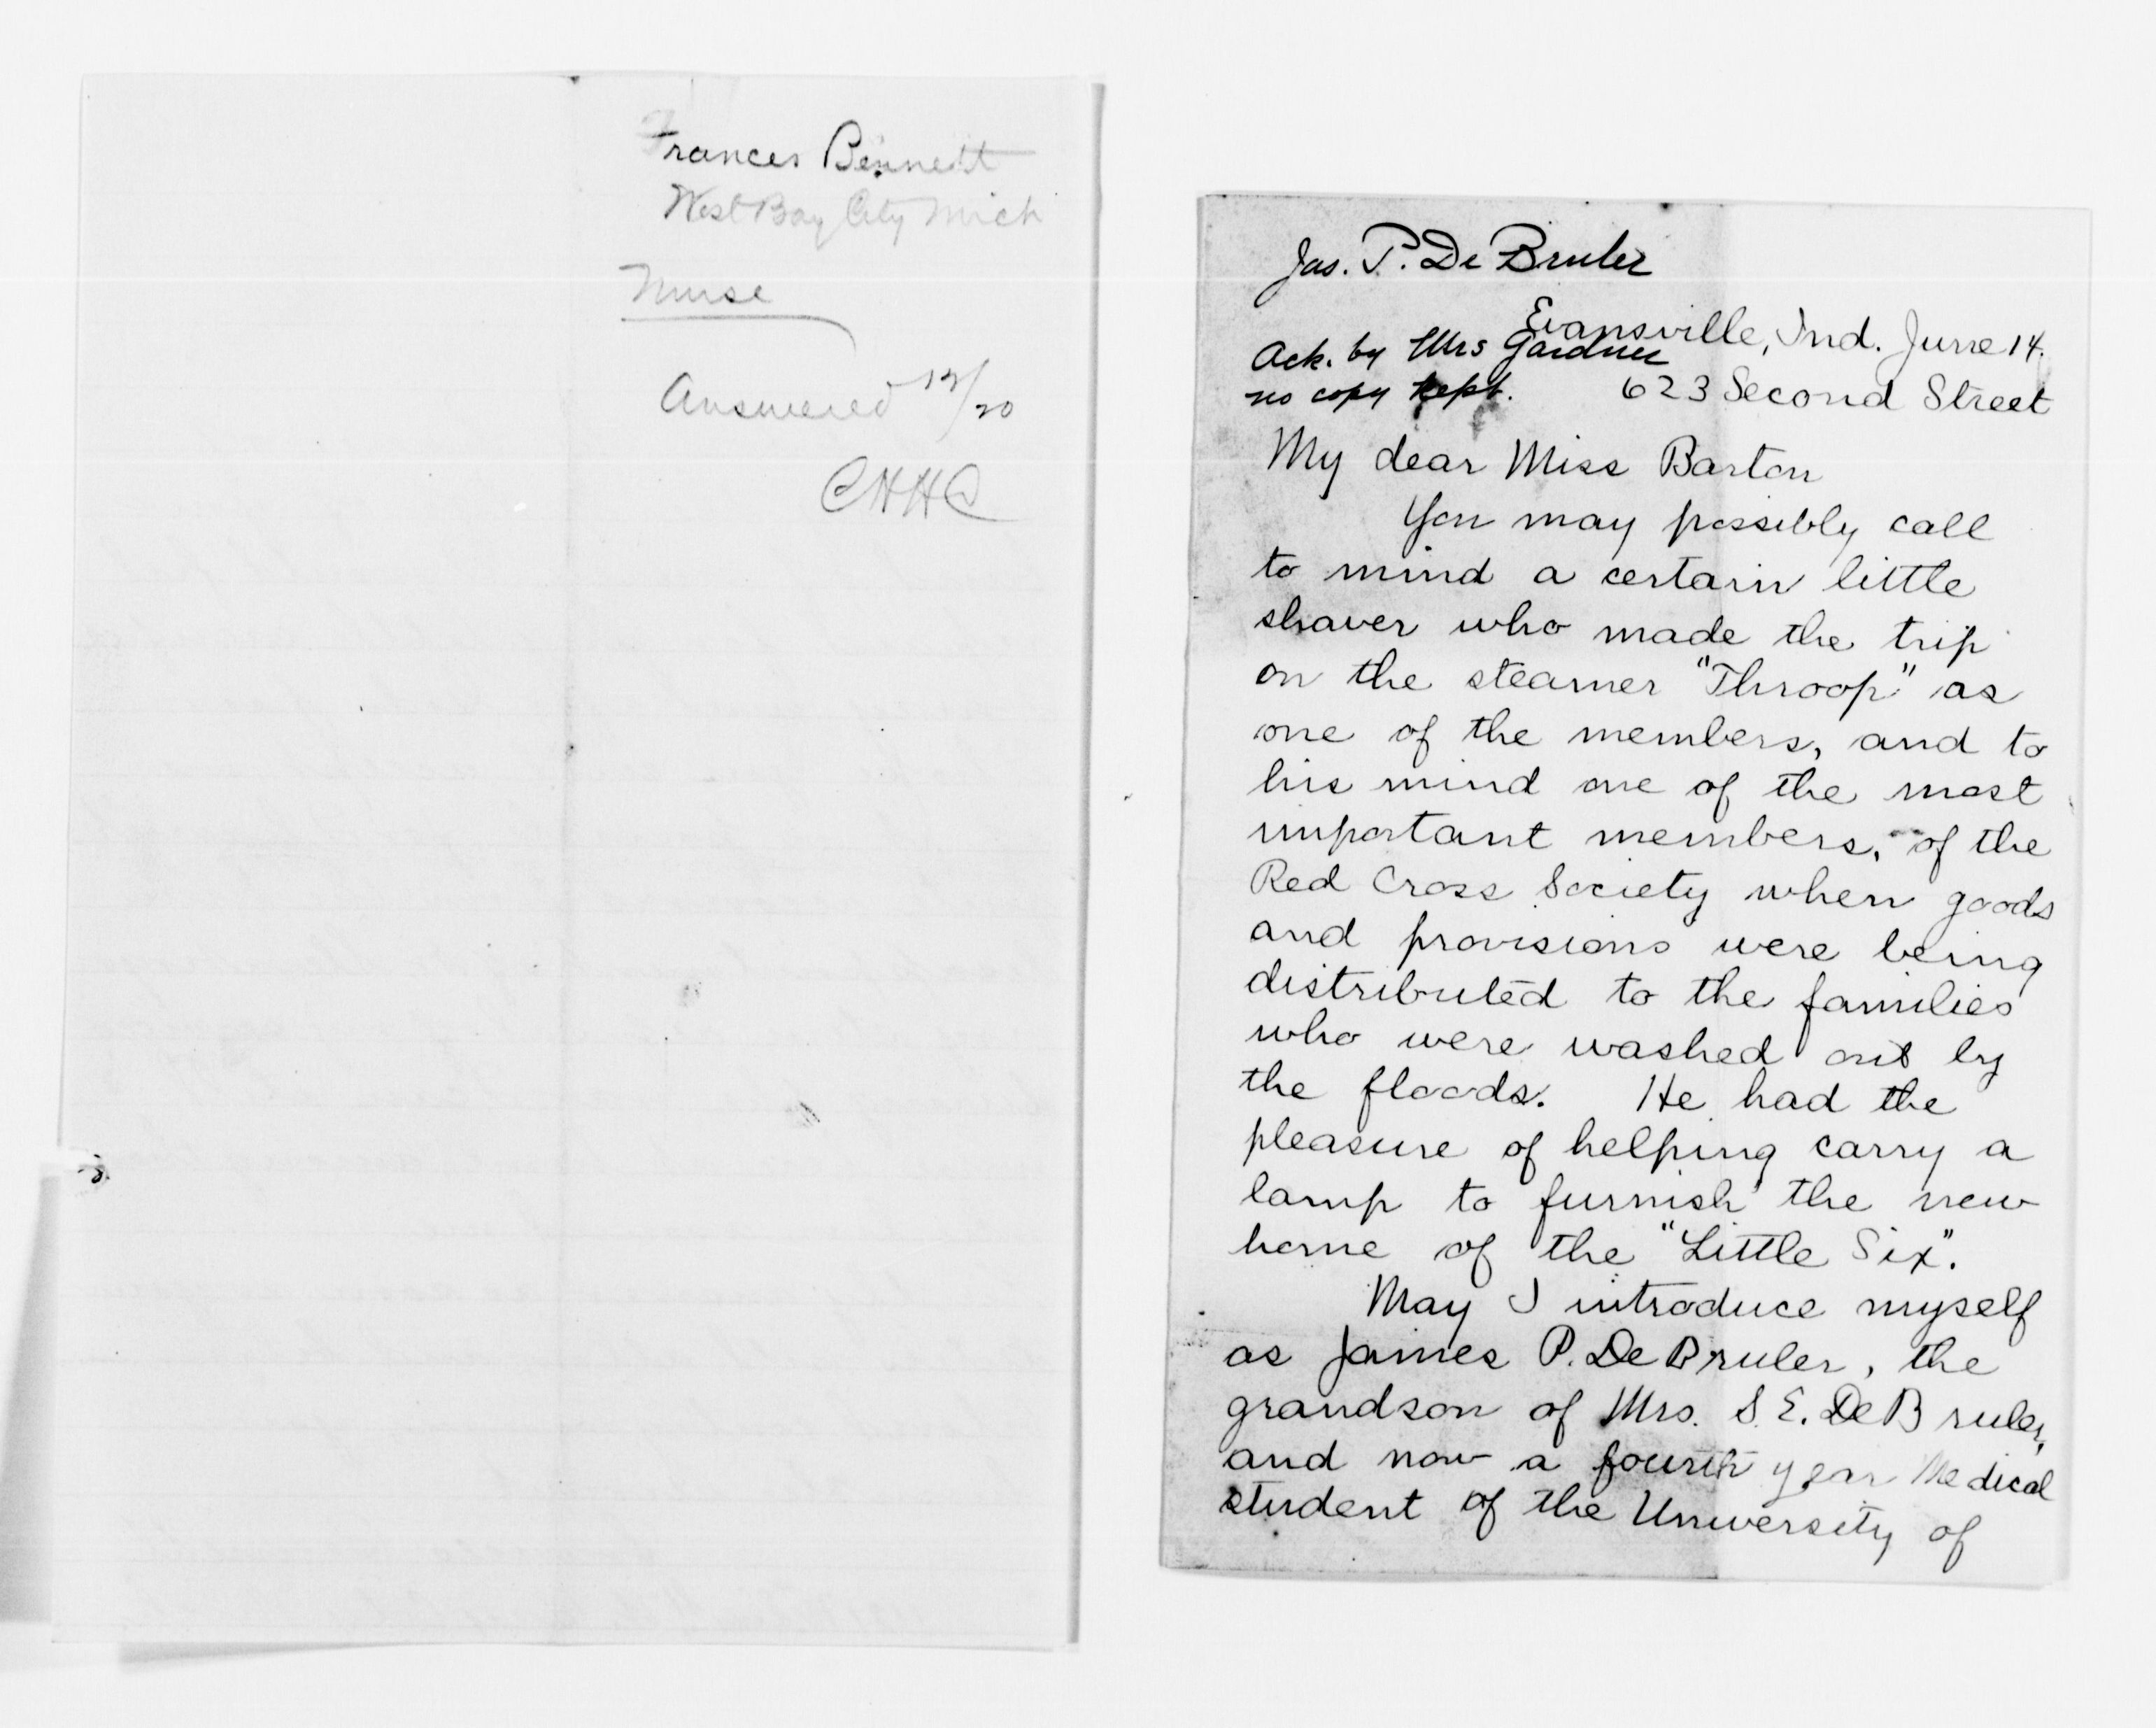 Frances Bennett
West Bay City Mich
Nurse
Answered 12/20
CHHC
Jas. P. De Bruler
Evansville, Ind. June 14.
Ack. by Mrs Gardner
no copy kept.
623 Second Street
My dear Miss Barton
You may possibly call
to mind a certain little
shaver who made the trip
on the steamer "Throop" as
one of the members, and to
his mind one of the most
important members, of the
Red Cross Society when goods
and provisions were being
distributed to the families
who were washed out by
the floods. He had the
pleasure of helping carry a
lamp to furnish the new
home of the "Little Six".
May I introduce myself
as James P. DeBruler, the
grandson of Mrs. S. E. DeBruler,
and now a fourth year Medical
student of the University of